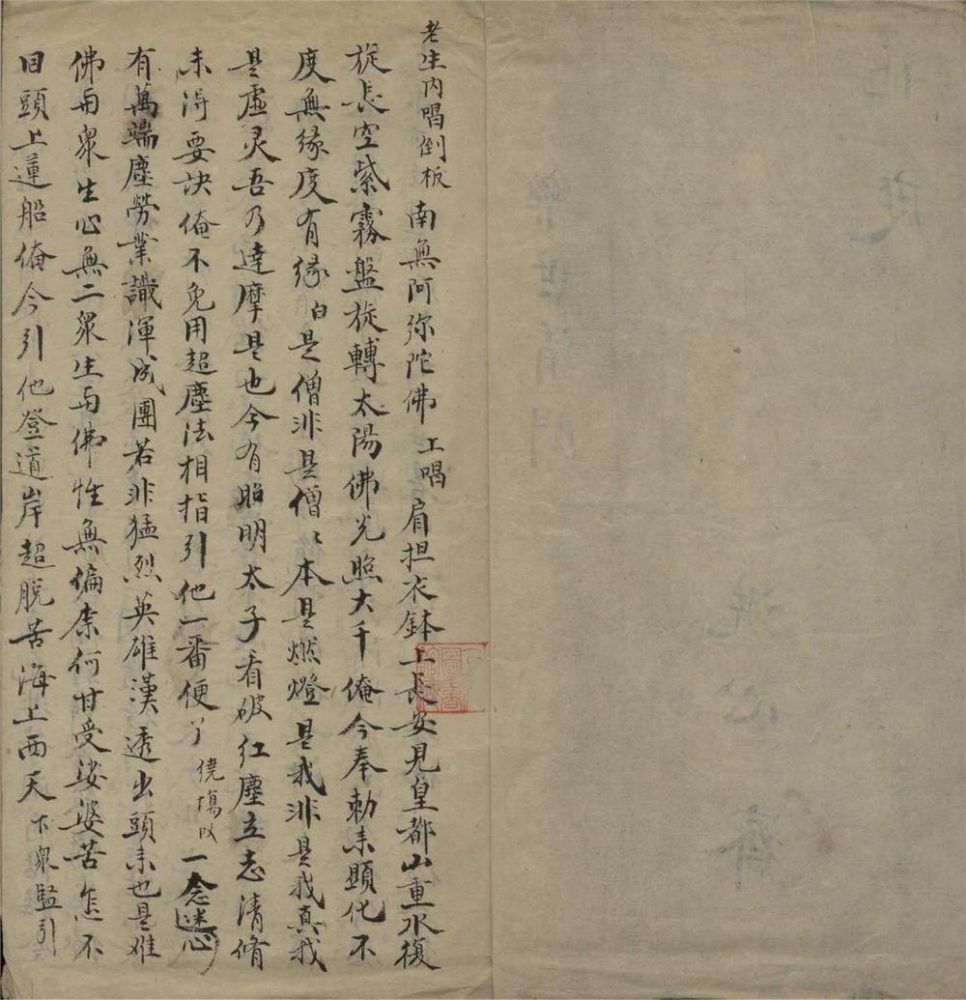 老生内唱倒板 南無阿弥陀佛 上唱 肩担衣鉢上長安見皇都山重水復
旋長空紫霧盤旋轉太陽佛光照大千俺今奉勅来顕化不
度無缘度有缘 白 是僧非是僧〻本是燃燈是我非是我真我
是虚灵吾乃達摩是也今有昭明太子看破红塵立志清脩
未得要訣俺不免用超塵法相指引他一番便了 繞場以 一念迷心
有萬端塵勞業識渾成團若非猛烈英雄漢透出頭来也是难
佛与衆生心無二衆生与佛性無偏柰何甘受娑婆苦怎不
囬頭上蓮船俺今引他登道岸超脱苦海上西天 下衆監引